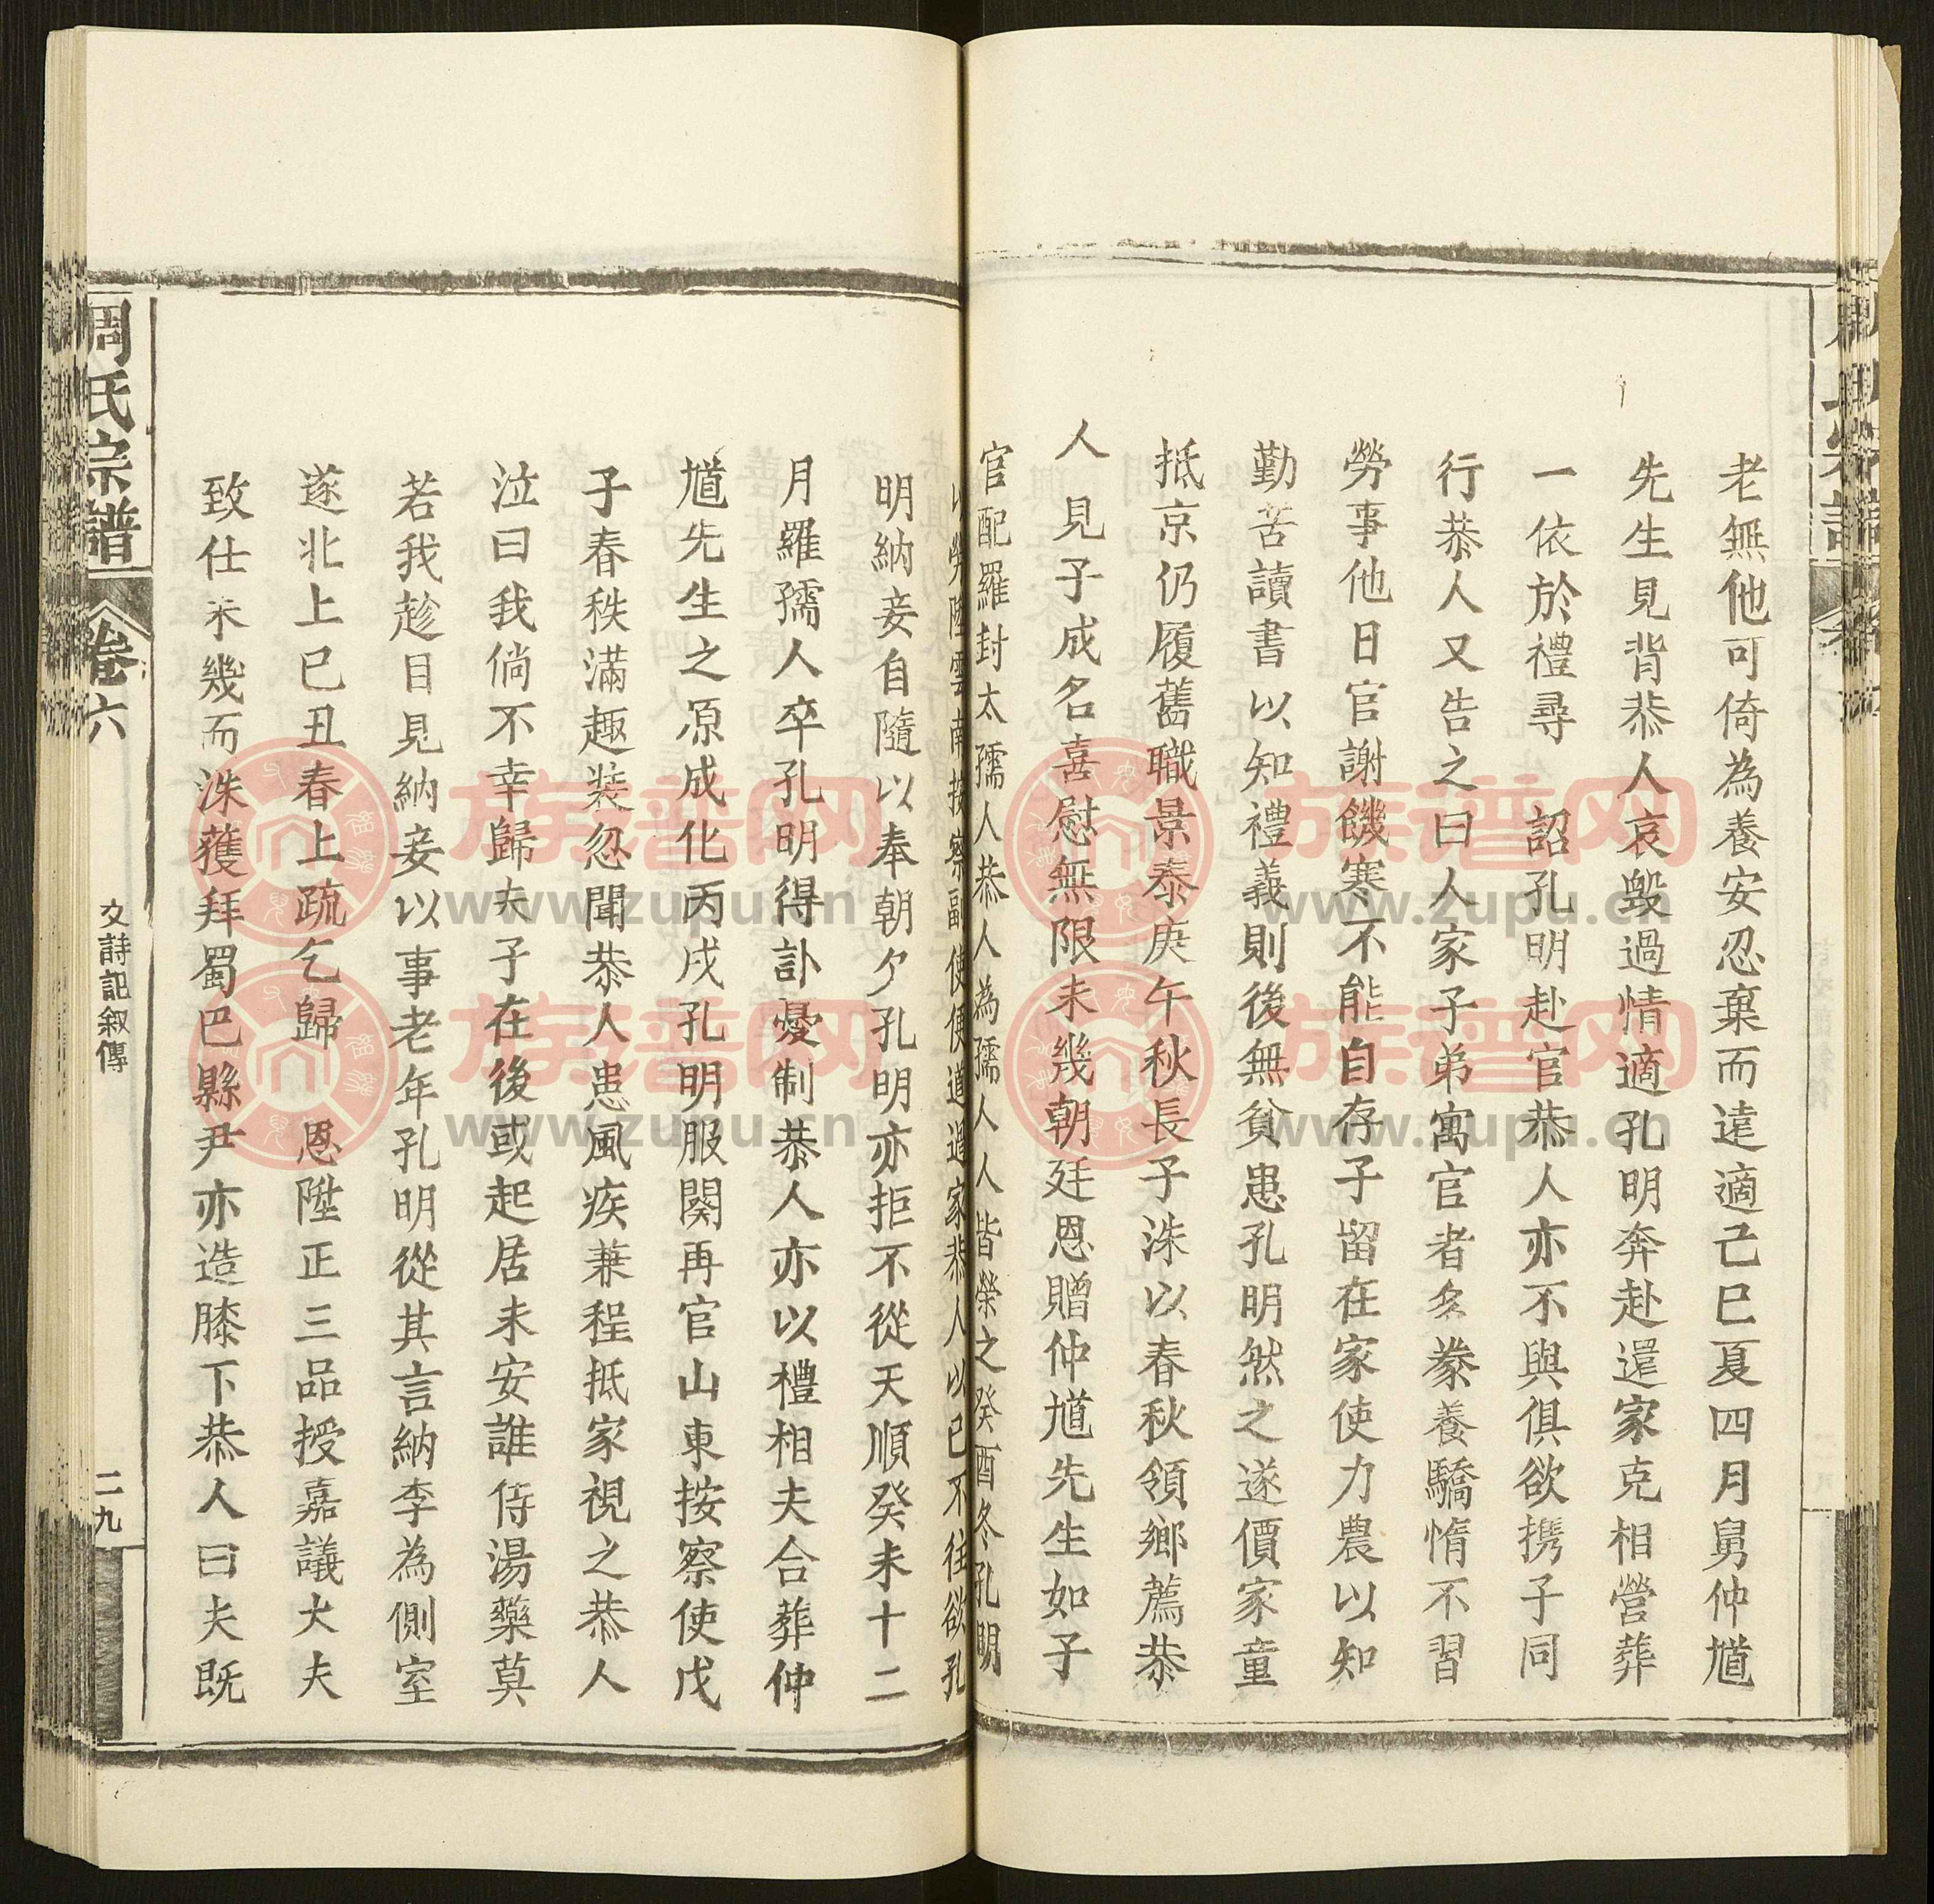 老無他可倚為養安忍棄而遠適己巳夏四月舅仲馗
先生見背恭人哀毀過情適孔明奔赴還家克相營葬
一依於禮尋 詔孔明赴官恭人亦不與俱欲携子同
行恭人又告之曰人家子弟寓官者多豢養驕惰不習
勞事他日官謝饑寒不能自存子留在家使力農以知
勤苦讀書以知禮義則後無貧患孔明然之遂價家童
抵京仍履舊職景泰庚午秋長子洙以春秋領鄉薦恭
人見子成名喜慰無限未幾朝廷恩贈仲馗先生如子
官配羅封太孺人恭人為孺人人皆榮之癸酉冬孔明
以勞陞雲南按察副使便道過家恭人以已不往欲孔
明納妾自隨以奉朝夕孔明亦拒不從天順癸未十二
月羅孺人卒孔明得訃憂制恭人亦以禮相夫合葬仲
馗先生之原成化丙戌孔明服闋再官山東按察使戊
子春秩滿趣裝忽聞恭人患風疾兼程抵家視之恭人
泣曰我倘不幸歸夫子在後或起居未安誰侍湯藥莫
若我趁目見納妾以事老年孔明從其言納李為側室
遂北上巳丑春上疏乞歸 恩陞正三品授嘉議大夫
致仕未幾而洙獲拜蜀巴縣尹亦造膝下恭人曰夫既
周氏宗譜
卷六
文詩記叙傳
二九
族谱网
www.zupu.cn
族谱网
www.zupu.cn
族谱网
www.zupu.cn
族谱网
www.zupu.cn